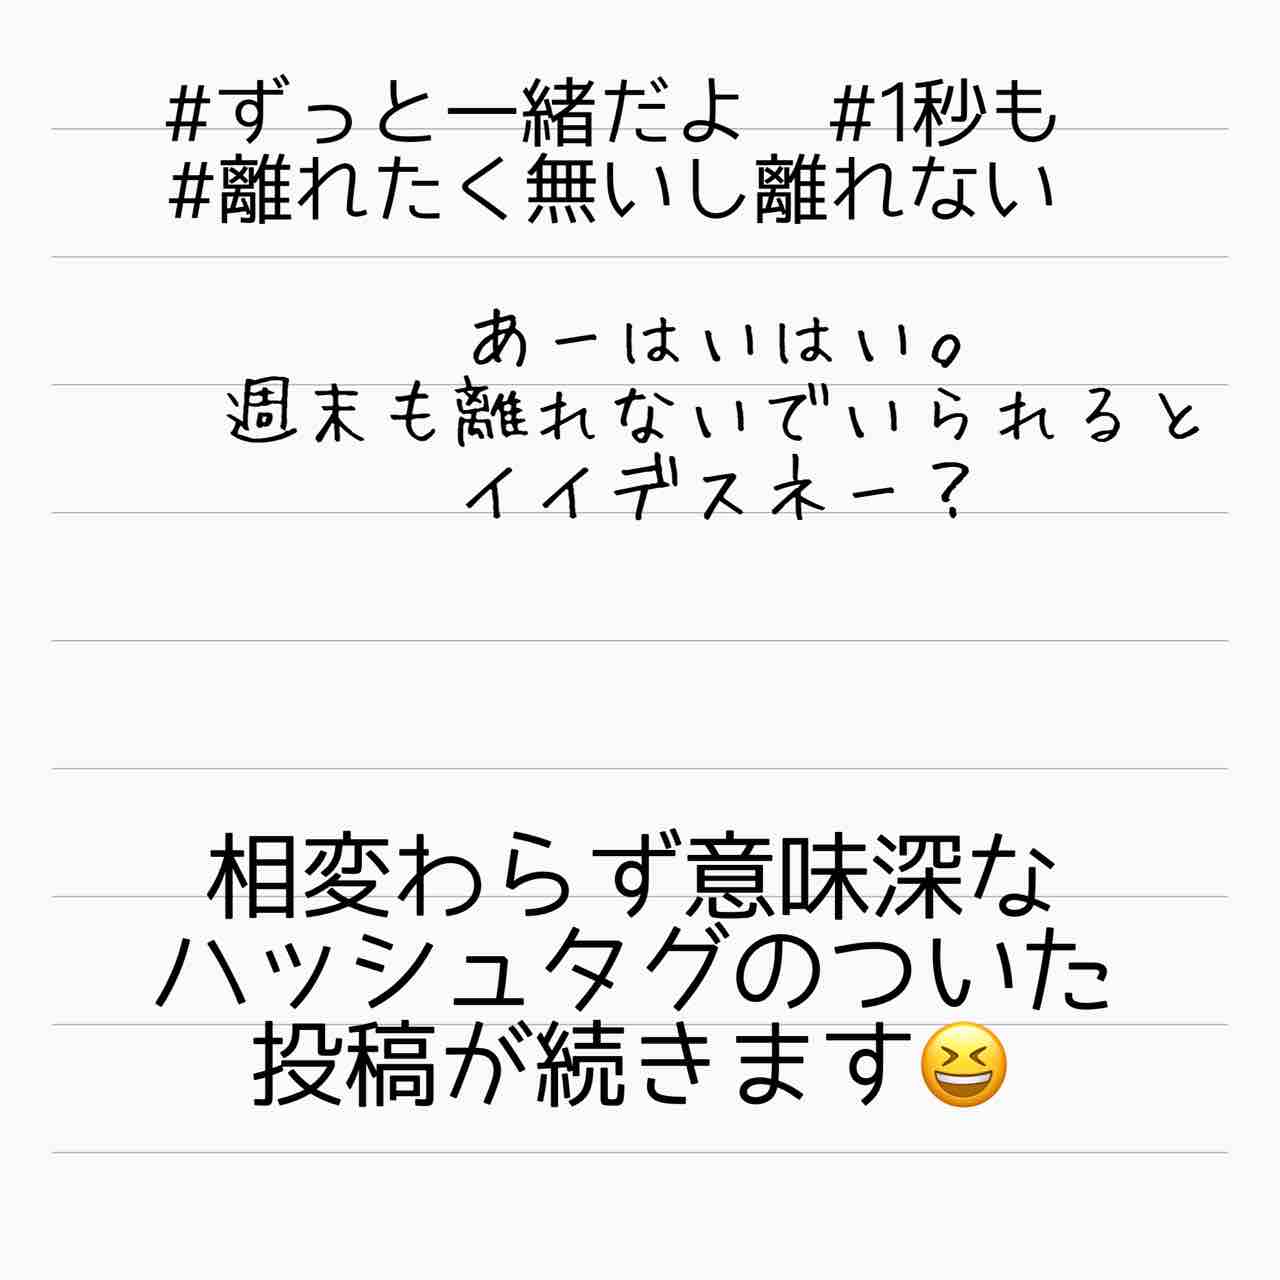 #ずっと一緒だよ　#1秒も
#離れたく無いし離れない
あーはいはい。
週末も離れないでいられると
イイデスネー?
相変わらず意味深な
ハッシュタグのついた
投稿が続きます😆